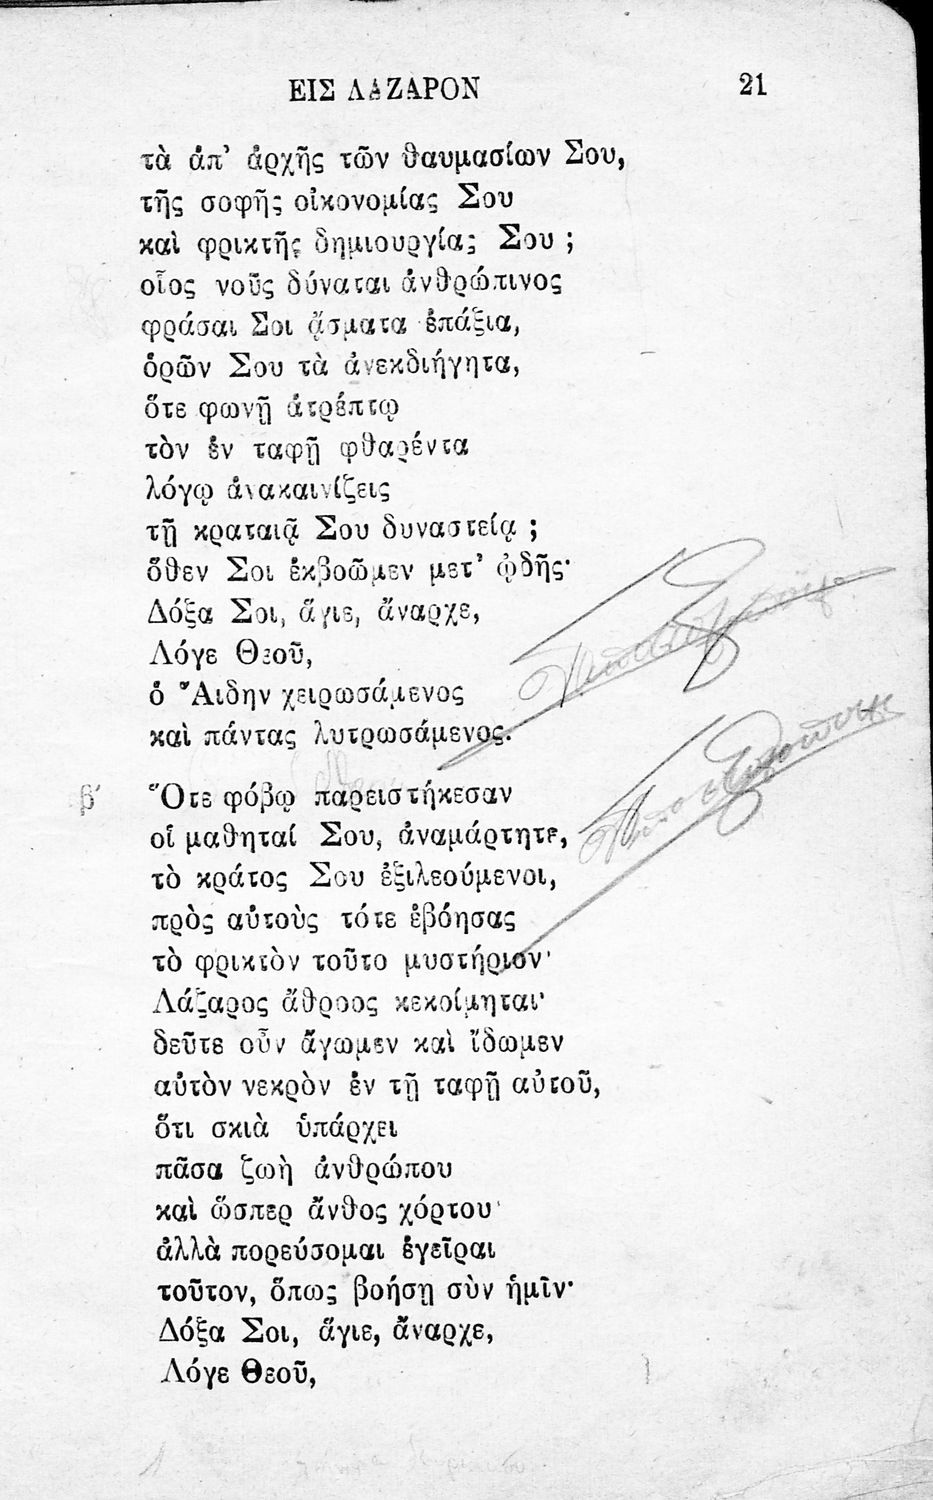 ΕΙΣ ΛΑΖΑΡΟΝ 21
τὰ ἀπ' ἀρχῆς τῶν θαυμασίων Σου,
τῆς σοφῆς οἰκονομίας Σου
καὶ φρικτῆς δημιουργίας Σου ;
οἷος νοῦς δύναται ἀνθρώπινος
φράσαι Σοι ᾄσματα ἐπάξια,
ὁρῶν Σου τὰ ἀνεκδιήγητα,
ὅτε φωνῇ ἀτρέπτῳ
τὸν ἐν ταφῇ φθαρέντα
λόγῳ ἀνακαινίζεις
τῇ κραταιᾷ Σου δυναστείᾳ ;
ὅθεν Σοι ἐκβοῶμεν μετ' ᾠδῆς·
Δόξα Σοι, ἅγιε, ἄναρχε,
Λόγε Θεοῦ,
ὁ Ἅιδην χειρωσάμενος
καὶ πάντας λυτρωσάμενος.
β´ Ὅτε φόβῳ παρειστήκεσαν
οἱ μαθηταί Σου, ἀναμάρτητε,
τὸ κράτος Σου ἐξιλεούμενοι,
πρὸς αὐτοὺς τότε ἐβόησας
τὸ φρικτὸν τοῦτο μυστήριον·
Λάζαρος ἄθροος κεκοίμηται·
δεῦτε οὖν ἄγωμεν καὶ ἴδωμεν
αὐτὸν νεκρὸν ἐν τῇ ταφῇ αὐτοῦ,
ὅτι σκιὰ ὑπάρχει
πᾶσα ζωὴ ἀνθρώπου
καὶ ὥσπερ ἄνθος χόρτου·
ἀλλὰ πορεύσομαι ἐγεῖραι
τοῦτον, ὅπως βοήσῃ σὺν ἡμῖν·
Δόξα Σοι, ἅγιε, ἄναρχε,
Λόγε Θεοῦ,